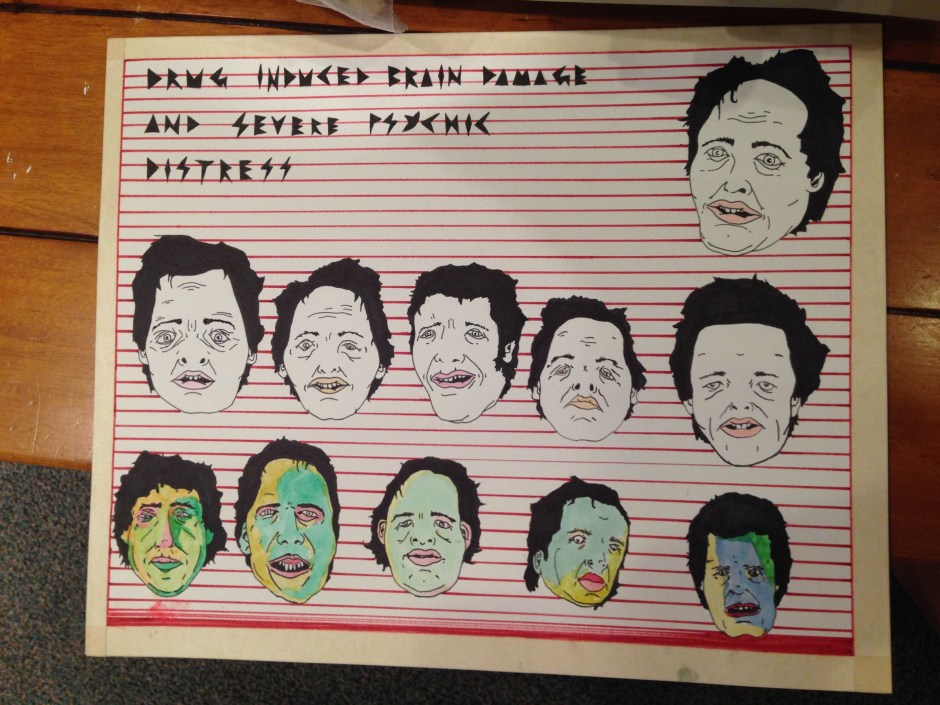 DRUG INDUCED BRAIN DAMAGE
AND SEVERE PSYCHIC
DISTRESS